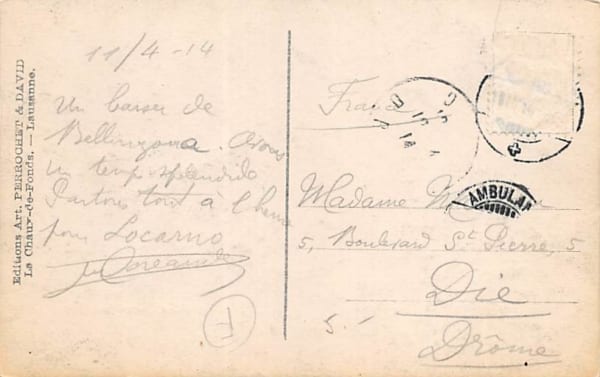 Editions Art. PERROCHET & DAVID
La Chaux-de-Fonds. — Lausanne.
11/4-14
Un baiser de
Bellinzona. Avons
un temps splendide
Partons tout à l'heure
pour Locarno
France
Madame
5, Boulevard St Pierre, 5
Die
Drôme
AMBULAN
F
5.-